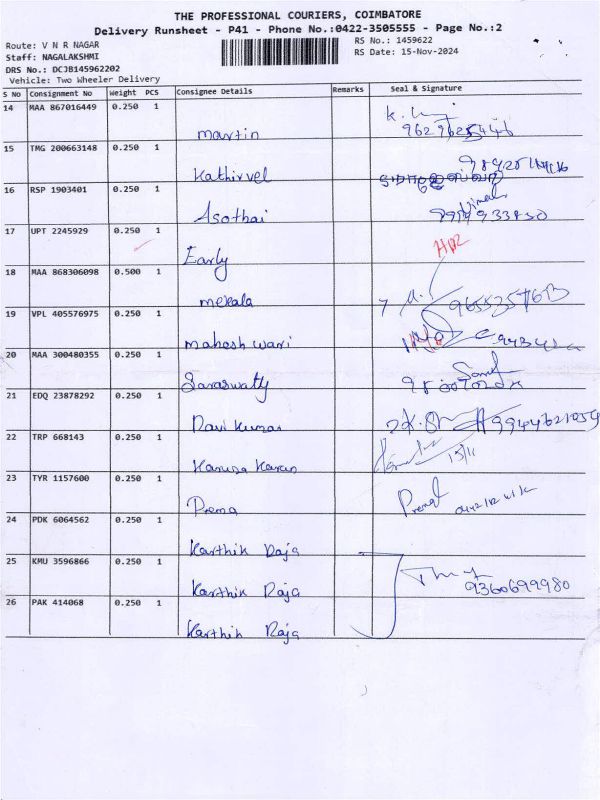 THE PROFESSIONAL COURIERS, COIMBATORE
Delivery Runsheet - P41 - Phone No.:0422-3505555 - Page No.:2
Route: V N R NAGAR
RS No.: 1459622
Staff: NAGALAKSHMI
RS Date: 15-Nov-2024
DRS No.: DCJB145962202
Vehicle: Two Wheeler Delivery
S No Consignment No Weight PCS Consignee Details Remarks Seal & Signature
14 MAA 867016449 0.250 1
Martin
15 TMG 200663148 0.250 1
Kathirvel
16 RSP 1903401 0.250 1
Asothai
17 UPT 2245929 0.250 1
Early
18 MAA 868306098 0.500 1
mekala
19 VPL 405576975 0.250 1
Maheshwari
20 MAA 300480355 0.250 1
Saraswathy
21 EDQ 23878292 0.250 1
Ravi kumar 9944621059
22 TRP 668143 0.250 1
15/11
23 TYR 1157600 0.250 1
Prema
24 PDK 6064562 0.250 1
Karthik Raja
25 KMU 3596866 0.250 1
Karthik Raja 9360699980
26 PAK 414068 0.250 1
Karthik Raja